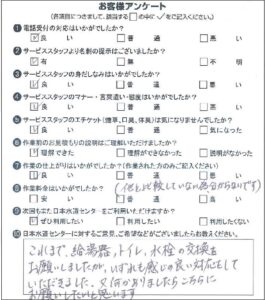 お客様アンケート
(各質問につきまして、該当する□の中に✓をご記入ください。)
❶電話受付の対応はいかがでしたか?
☑良い □普通 □悪い
❷サービススタッフより名刺の提示はございましたか?
☑有 □無 □不明
❸サービススタッフの身だしなみはいかがでしたか?
☑良い □普通 □悪い
❹サービススタッフのマナー・言葉遣い・態度はいかがでしたか?
☑良い □普通 □悪い
❺サービススタッフのエチケット(煙草、口臭、体臭)は気になりませんでしたか?
☑良い □普通 □気になった
❻作業前のお見積もりの説明はご理解いただけましたか?
☑理解できた □理解ができなかった □説明がなかった
❼作業の仕上がりはいかがでしたか?(作業された方のみご記入ください)
☑良い □普通 □悪い
❽作業料金はいかがでしたか?(他と比較していない
□安い ☑普通 □高い
❾次回もまた日本水道センターをご利用いただけますか?
☑ぜひ利用したい □利用したい □利用したくない
❿日本水道センターに対するご意見、ご希望などがございましたらお書きください。
これまで、給湯器、トイレ、水栓の交換を
お願いしましたが、いずれも感じの良い対応をして
いただきました。又何かありましたらこちらに
お願いしたいと思います